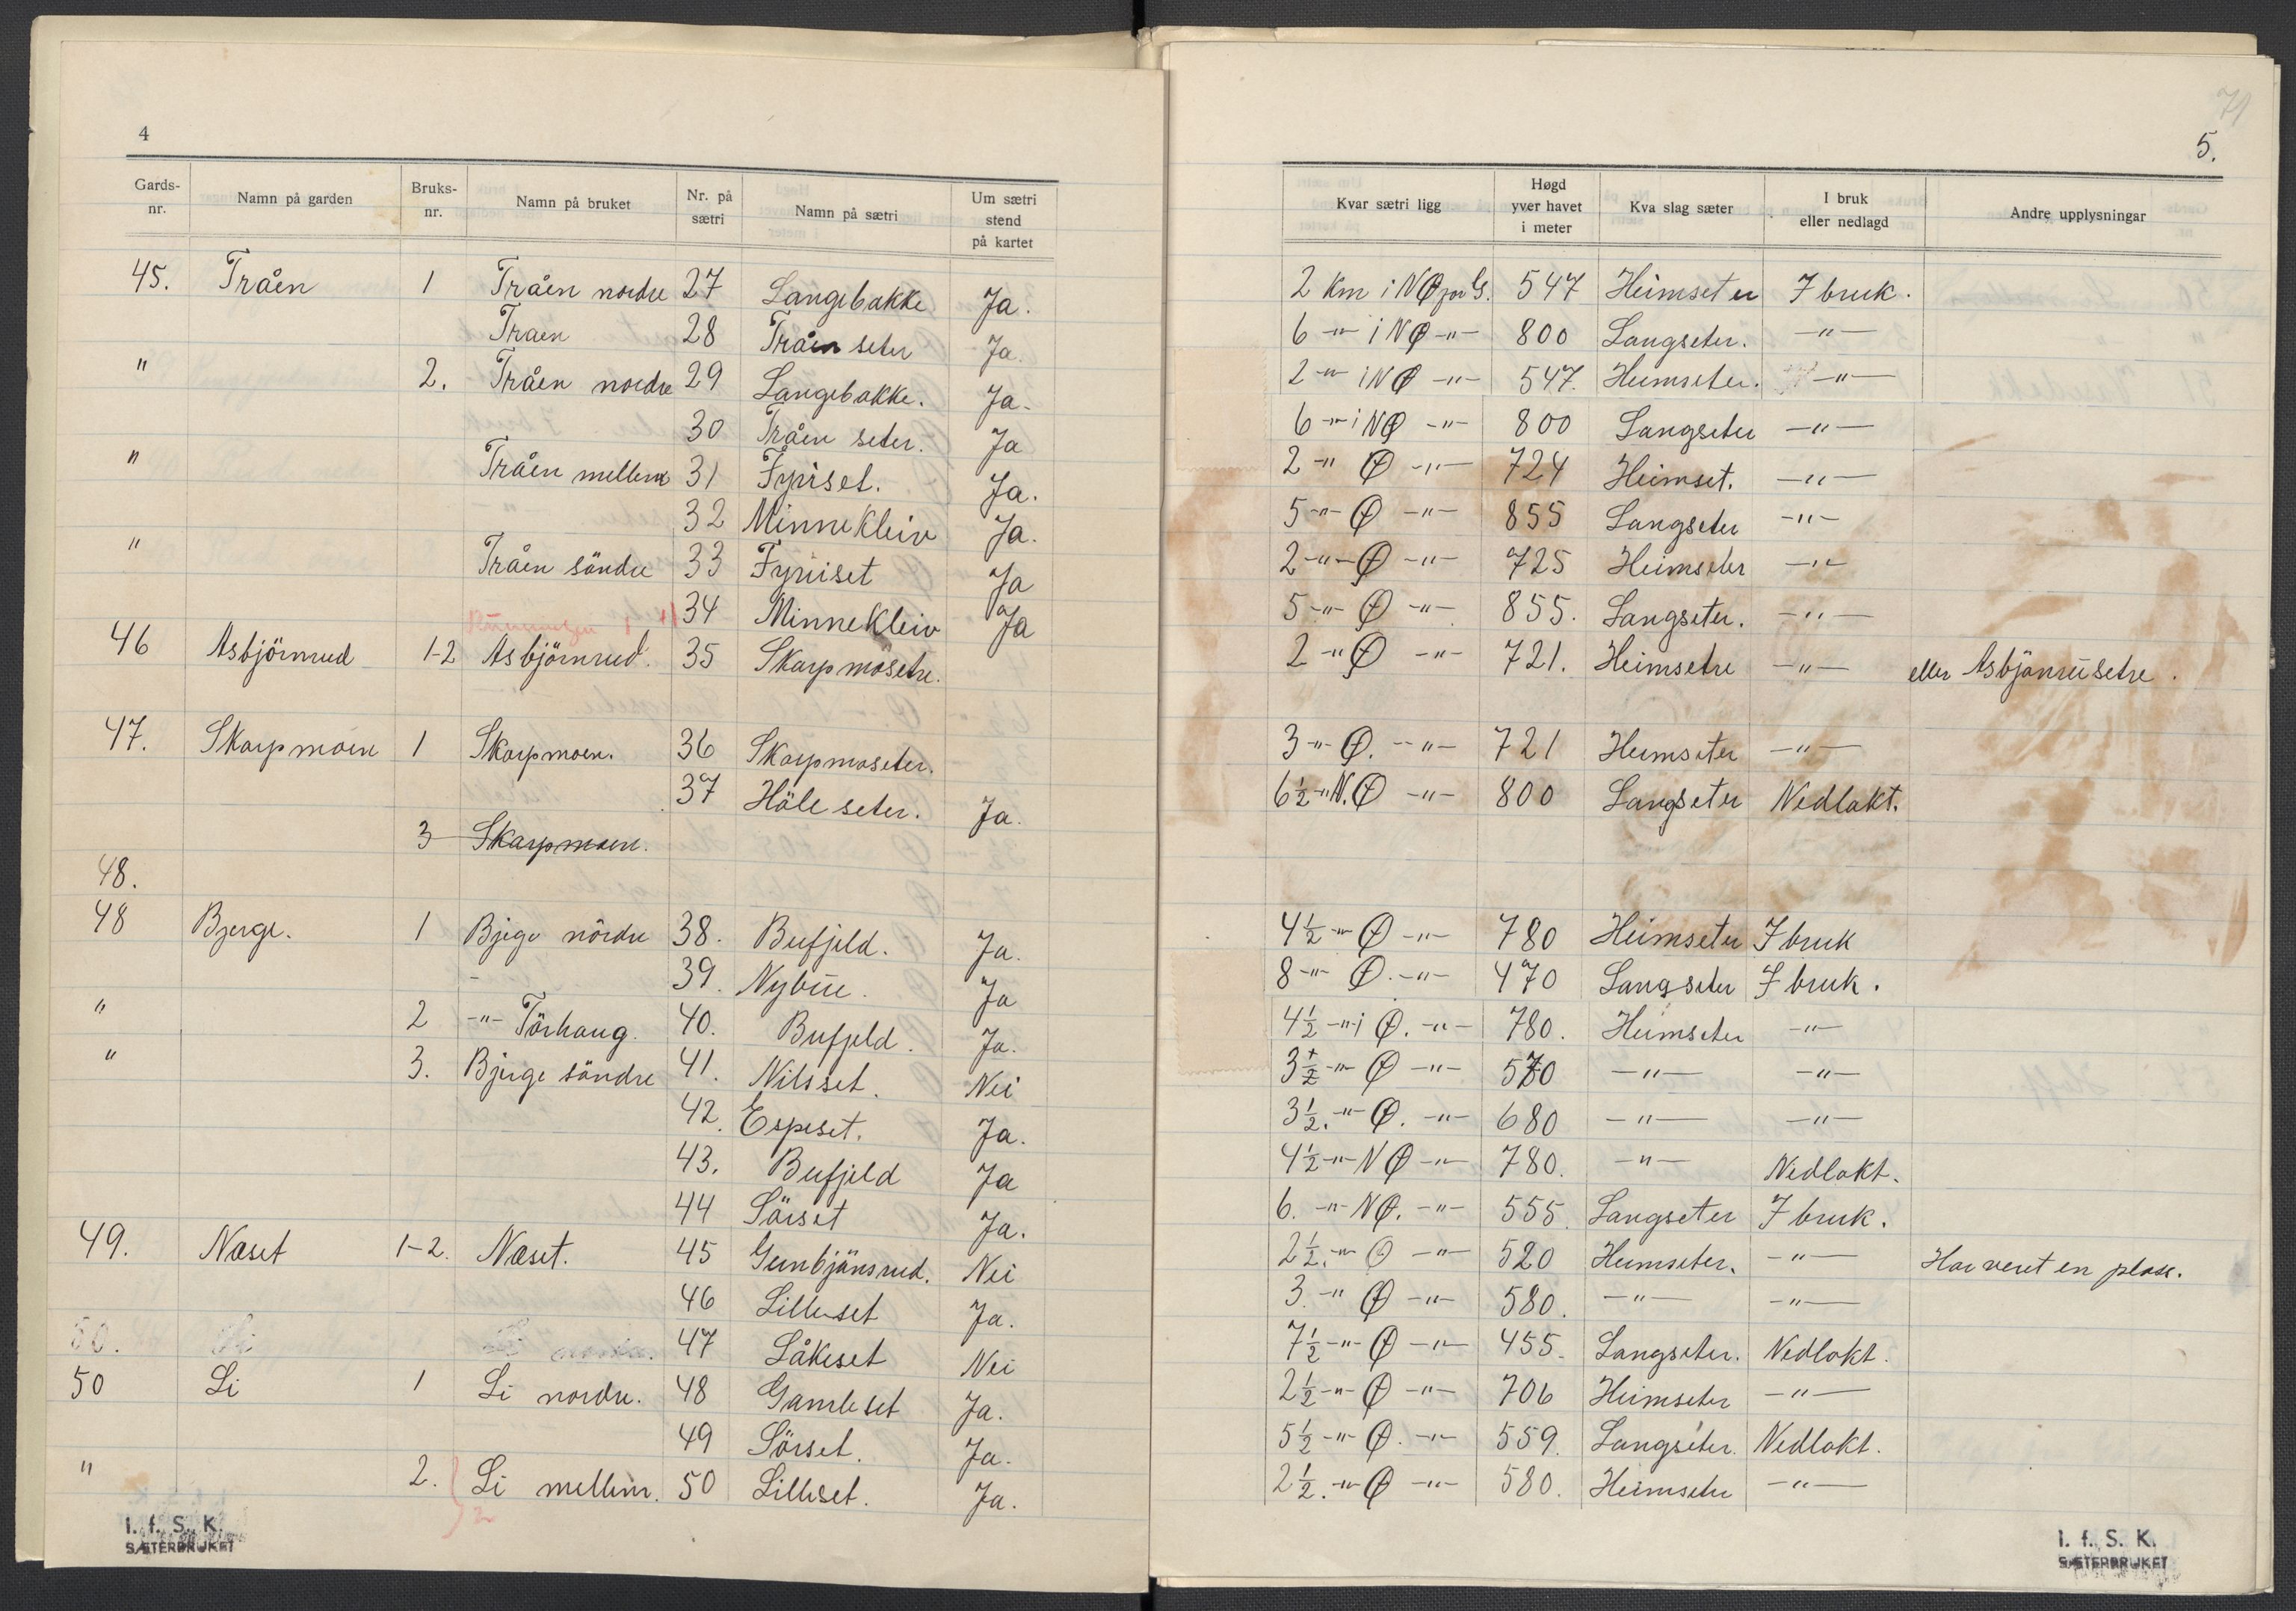 4
Gards-nr. Namn på garden Bruks-nr. Namn på bruket Nr. på sætri Namn på sætri Um sætri stend på kartet
45. Tråen 1 Tråen nordre 27 Langebakke Ja.
Traen 28 Tråen seter Ja.
" 2. Tråen nordre 29 Langebakke. Ja.
30 Tråen seter. Ja
" Tråen mellem 31 Fyriset. Ja.
32 Minnekleiv Ja.
" Tråen söndre 33 Fyriset Ja
34 Minnekleiv Ja
46 Asbjörnrud 1-2 Asbjörnrud. 35 Skarpmosetre.
47. Skarpmoen 1 Skarpmoen. 36 Skarpmoseter.
37 Höle seter. Ja.
3 Skarpmoen.
48.
48 Bjerge. 1 Bjerge nördre 38. Bufjeld. Ja.
39. Nybüe. Ja
" 2 -"- Törhaug. 40. Bufjeld. Ja.
" 3. Bjerge söndre 41. Nilsset. Nei
42. Espeset. Ja.
43. Bufjeld Ja
44 Sörset Ja.
49. Næset 1-2. Næset. 45 Gunbjönsrud. Nei
46 Lilleset Ja.
50. Li 47 Låkeset Nei
50 Li 1 Li nordre. 48 Gamleset Ja.
49 Sörset. Ja.
" 2. Li mellem. 50 Lilleset. Ja.
2
I. f. S. K.
SÆTERBRUKET
71
5.
Kvar sætri ligg Høgd yver havet i meter Kva slag sæter I bruk eller nedlagd Andre upplysningar
2 Km i NØ for G. 547 Heimseter I bruk.
6 -"- i NØ -"- 800 Langseter. -"-
2 -"- i NØ -"- 547. Heimseter. -"-
6 -"- i NØ -"- 800 Langseter -"-
2 -"- Ø -"- 724 Heimset. -"-
5 -"- Ø -"- 855 Langseter -"-
2 -"- Ø -"- 725 Heimseter -"-
5 -"- Ø -"- 855. Langseter. -"-
2 -"- Ø -"- 721. Heimsetre -"- eller Asbjönrüsetre.
3 -"- Ø. -"- 721 Heimseter -"-
6½ -"- N.Ø -"- 800 Langseter Nedlakt.
4½ -"- Ø -"- 780 Heimseter I bruk
8 -"- Ø. -"- 470 Langseter I bruk.
4½ -"- i Ø. -"- 780. Heimseter -"-
3½ -"- Ø -"- 570 -"- -"-
3½. -"- Ø. -"- 680 -"- -"-
4½ -"- NØ -"- 780. -"- Nedlakt.
6. -"- NØ. -"- 555. Langseter I bruk.
2½. -"- O -"- 520 Heimseter. -"- Har veret en plass.
3. -"- Ø -"- 580. -"- -"-
7½ -"- Ø -"- 455. Langseter. Nedlakt.
2½ -"- Ø -"- 706 Heimseter -"-
5½ -"- Ø. -"- 559. Langseter. Nedlakt.
2½. -"- Ø -"- 580. Heimseter -"-
I. f. S. K.
SÆTERBRUKET